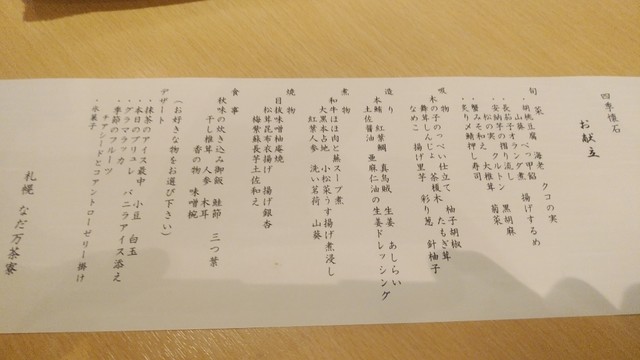 四季懐石
お献立
旬菜
・胡桃豆腐 べっ甲餡
海老 クコの実
・山葵 オランダ煮 揚げするめ
・長茄子の摺り流し 黒胡麻
・安納芋のレモン
・松の実 クルトン 菊菜
・蟹みそ和え 大椎茸
・炙り〆鯖押し寿司
吸物
木の子のっぺい仕立て 柚子胡椒
舞茸しんじょ 茶蕎木 たもぎ茸
なめこ 揚げ里芋 彩り葱 針柚子
造り
本鮪 紅葉鯛 真烏賊 生姜 あしらい
土佐醤油 亜麻仁油の生姜ドレッシング
煮物
和牛ほほ肉と蕪スープ煮
大黒本占地 小松菜うす揚げ煮浸し
紅葉人参 洗い茗荷 山葵
焼物
目抜味噌柚庵焼
松茸昆布衣揚げ 揚げ銀杏
梅紫蘇長芋土佐和え
食事
秋味の炊き込み御飯 鮭節 三つ葉
干し椎茸 人参 木耳
香の物 味噌椀
デザート
(お好きな物をお選び下さい)
・抹茶のアイス最中 小豆 白玉
・本日のブリュレ バニラアイス添え
・グラマラッカ
・季節のフルーツ
チアシードとコアントローゼリー掛け
・氷菓子
札幌 なだ万茶寮